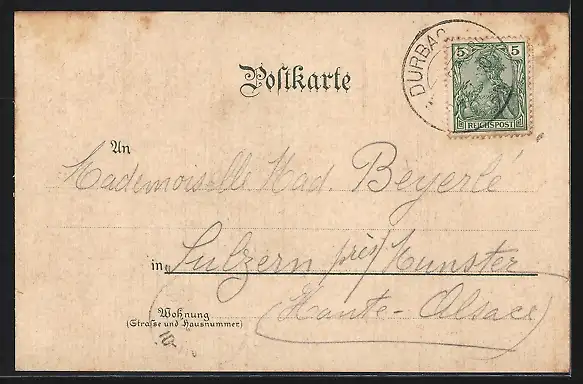 DURBAC
5 5
REICHSPOST
Postkarte
An
Mademoiselle Mad. Beyerlé
in Sulzern près Munster
Haute-Alsace
Wohnung
(Strasse und Hausnummer)